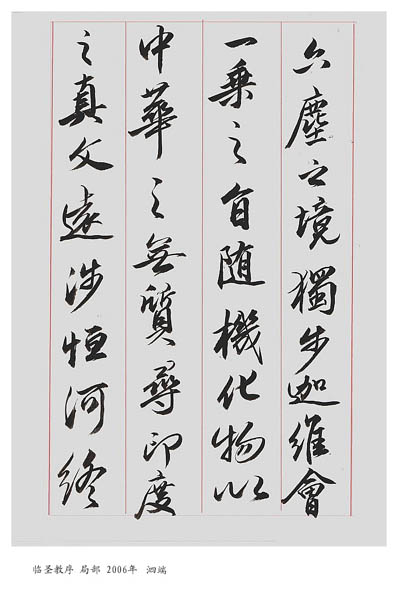 六塵之境獨步迦維會
一乘之旨随機化物以
中華之無質尋印度
之真文遠涉恒河終
临圣教序 局部 2006年 泗端